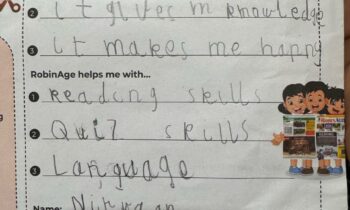 2 it gives m knowledge
3 it makes me happy
RobinAge helps me with...
1 Reading skills
2 Quiz skills
3 Language
Name: Nirvaan